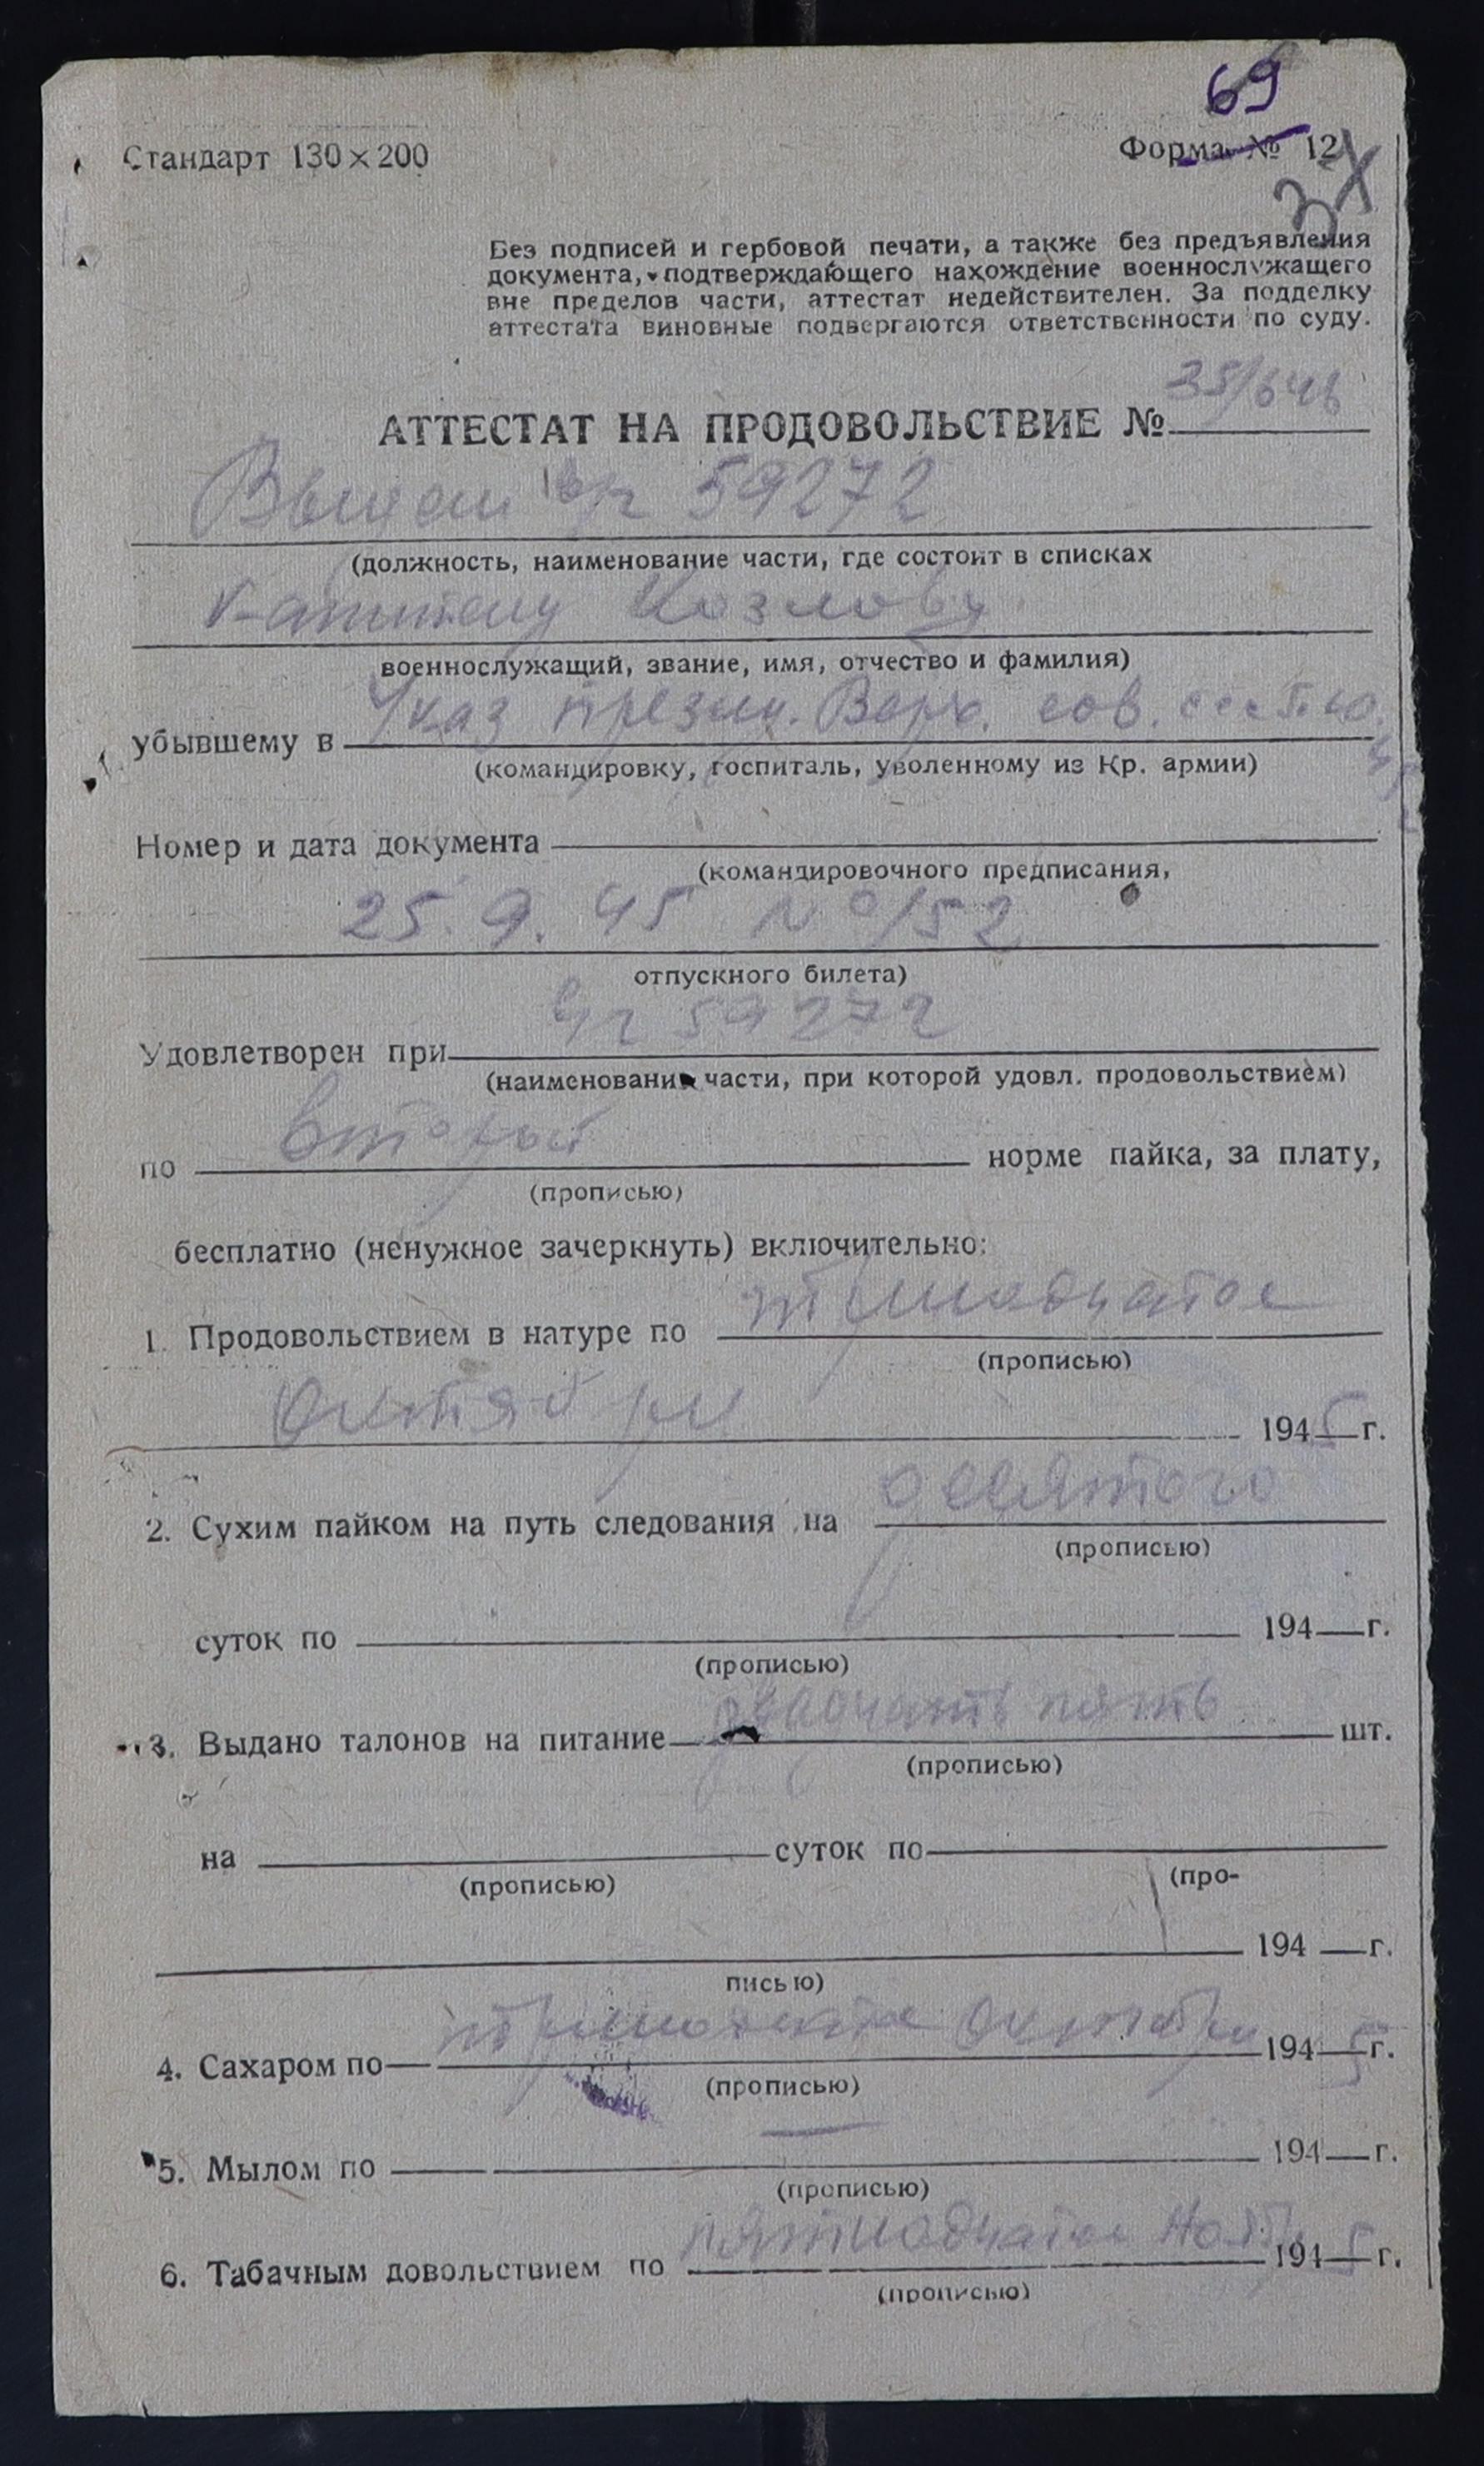 69
Стандарт 130×200
Форма № 12
Без подписей и гербовой печати, а также без предъявления
документа, подтверждающего нахождение военнослужащего
вне пределов части, аттестат недействителен. За подделку
аттестата виновные подвергаются ответственности по суду.
АТТЕСТАТ НА ПРОДОВОЛЬСТВИЕ № 35/646
59272
(должность, наименование части, где состоит в списках
Капитану Козлову
военнослужащий, звание, имя, отчество и фамилия)
убывшему в Указ през. Верх. сов.
(командировку, госпиталь, уволенному из Кр. армии)
Номер и дата документа
(командировочного предписания,
25.9.45 № 152
отпускного билета)
Удовлетворен при 59272
(наименование части, при которой удовл. продовольствием)
по второй норме пайка, за плату,
(прописью)
бесплатно (ненужное зачеркнуть) включительно:
1. Продовольствием в натуре по тринадцатое
(прописью)
Октября 1945 г.
2. Сухим пайком на путь следования на
(прописью)
суток по 194 г.
(прописью)
3. Выдано талонов на питание двадцать пять шт.
(прописью)
на суток по
(прописью) (про-
194 г.
писью)
4. Сахаром по тринадцатое Октября 1945 г.
(прописью)
5. Мылом по — 194 г.
(прописью)
6. Табачным довольствием по пятнадцатое 1945 г.
(прописью)